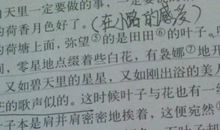 天里一定要做的事,
荷香月色好了。(在小路的感受)
荷塘上面,弥望⑤的是田田⑥的叶子。
零星地点缀着些白花,有袅娜⑦地开
又如碧天里的星星,又如刚出浴的美人
的歌声似的。这时候叶子与花也有一丝
子本是肩并肩密密地挨着,这便宛然